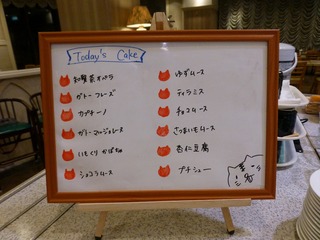 Today's Cake
和栗茶オペラ
ガトーフレーズ
カプチーノ
ガトーマージョレーヌ
いもくりかぼちゃ
ショコラムース
ゆずムース
ティラミス
チョコムース
さつまいもムース
杏仁豆腐
プチシュー